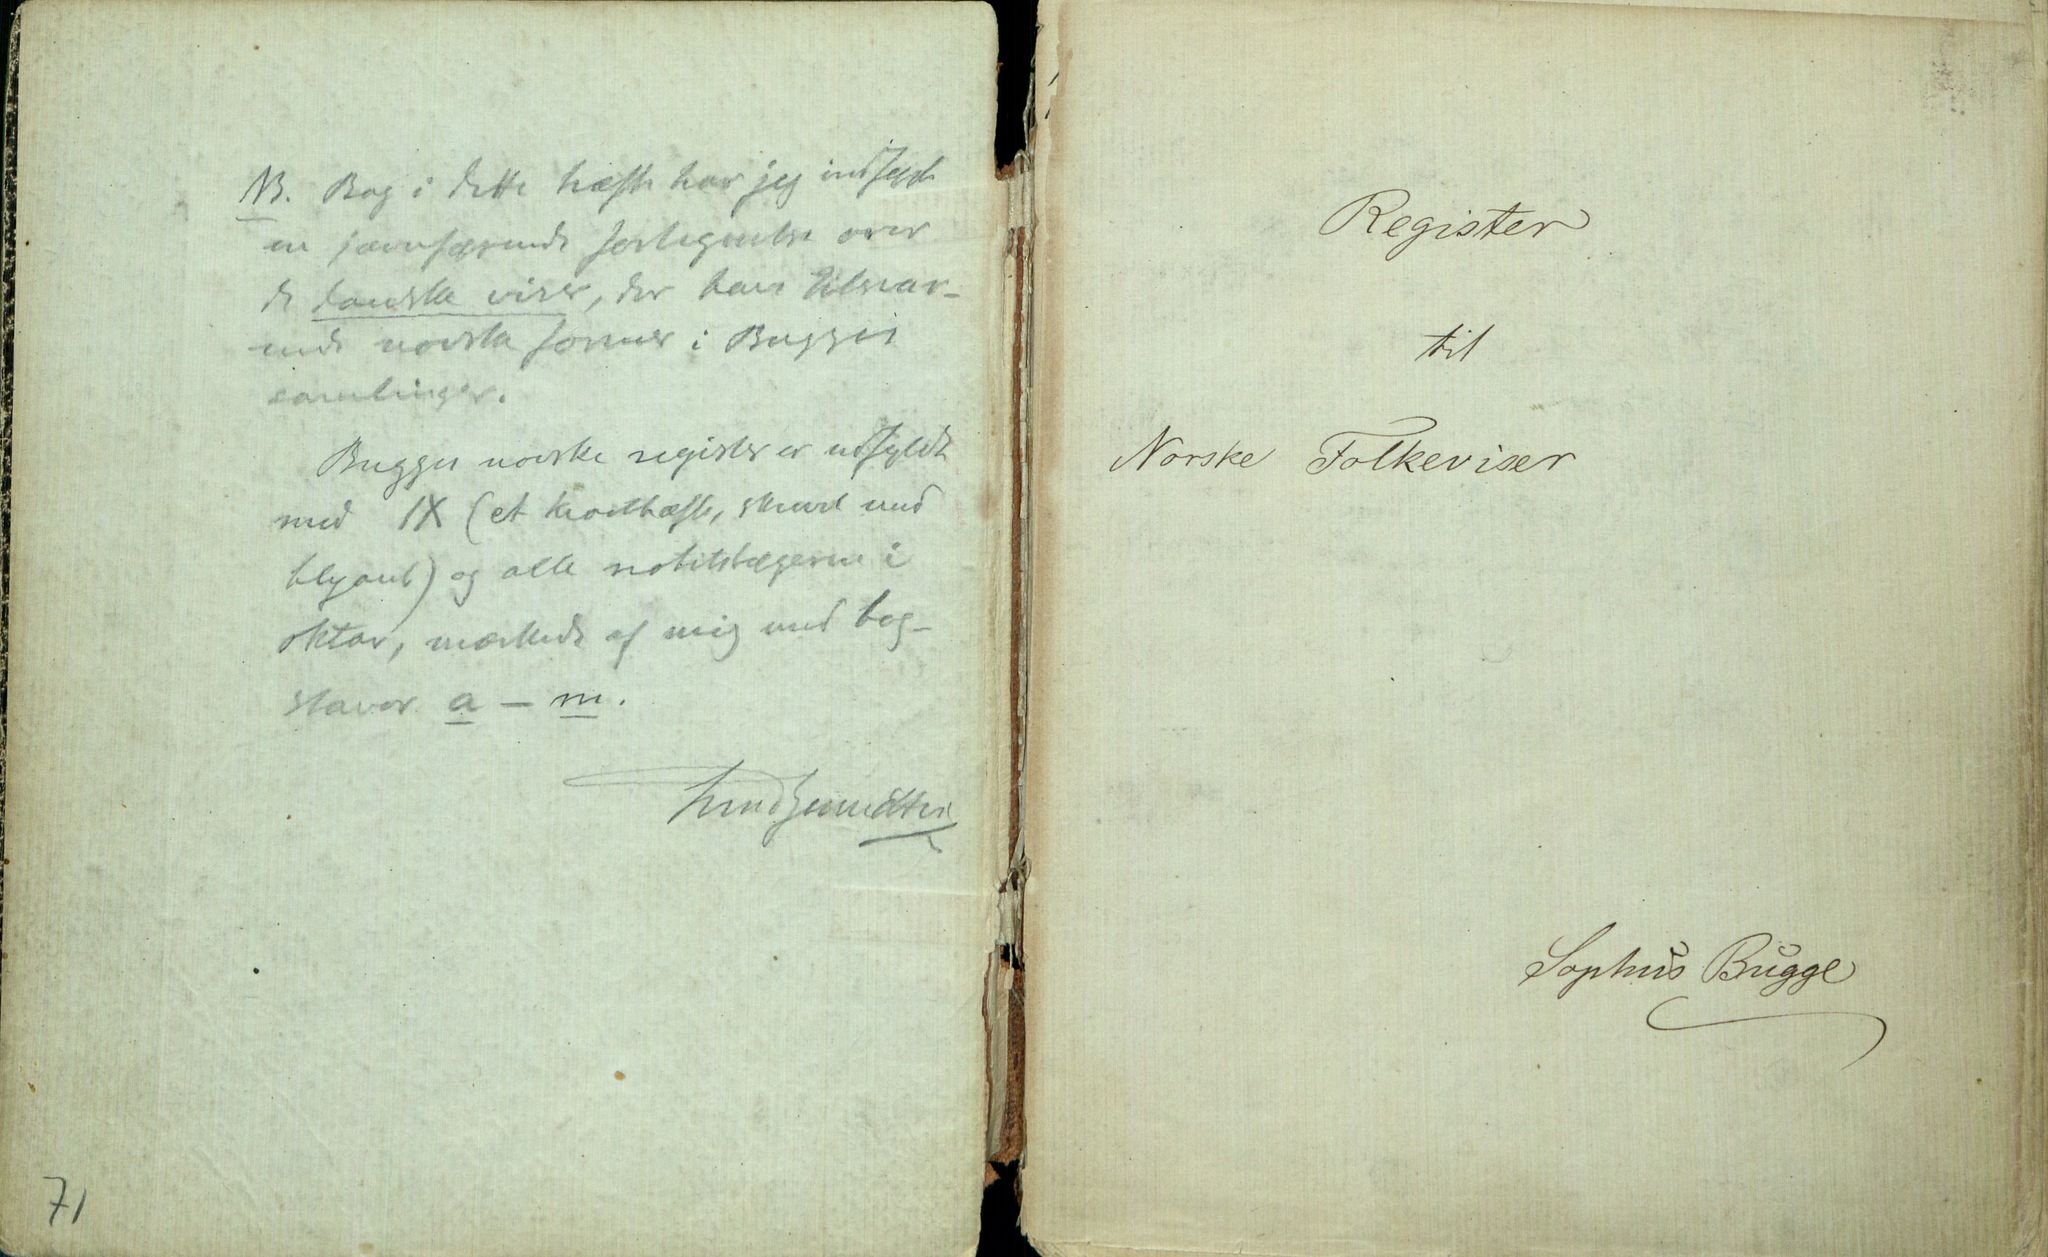 NB. Bag i dette hæfte har jeg indføjet
en jævnførende fortegnelse over
de danske viser, der have tilsvar-
ende norske former i Bugges
samlinger.
Bugges norske register er udfyldt
med IX (et kvarthæfte, skrevet med
blyant) og alle notitsbøgerne i
oktav, mærkede af mig med bog-
staver a – m.
71
Register
til
Norske Folkeviser
Sophus Bugge